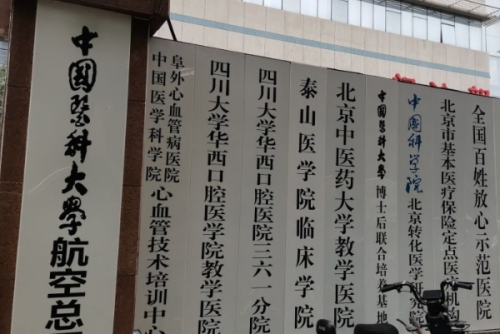 中国医科大学航空总
中国医学科学院
阜外心血管病医院
心血管技术培训中心
四川大学华西口腔医学院教学医院
四川大学华西口腔医院三六一分院
泰山医学院临床学院
北京中医药大学教学医院
中国医科大学
博士后联合培养基地
中国科学院
北京转化医学研究院
北京市基本医疗保险定点医疗机构
全国百姓放心示范医院